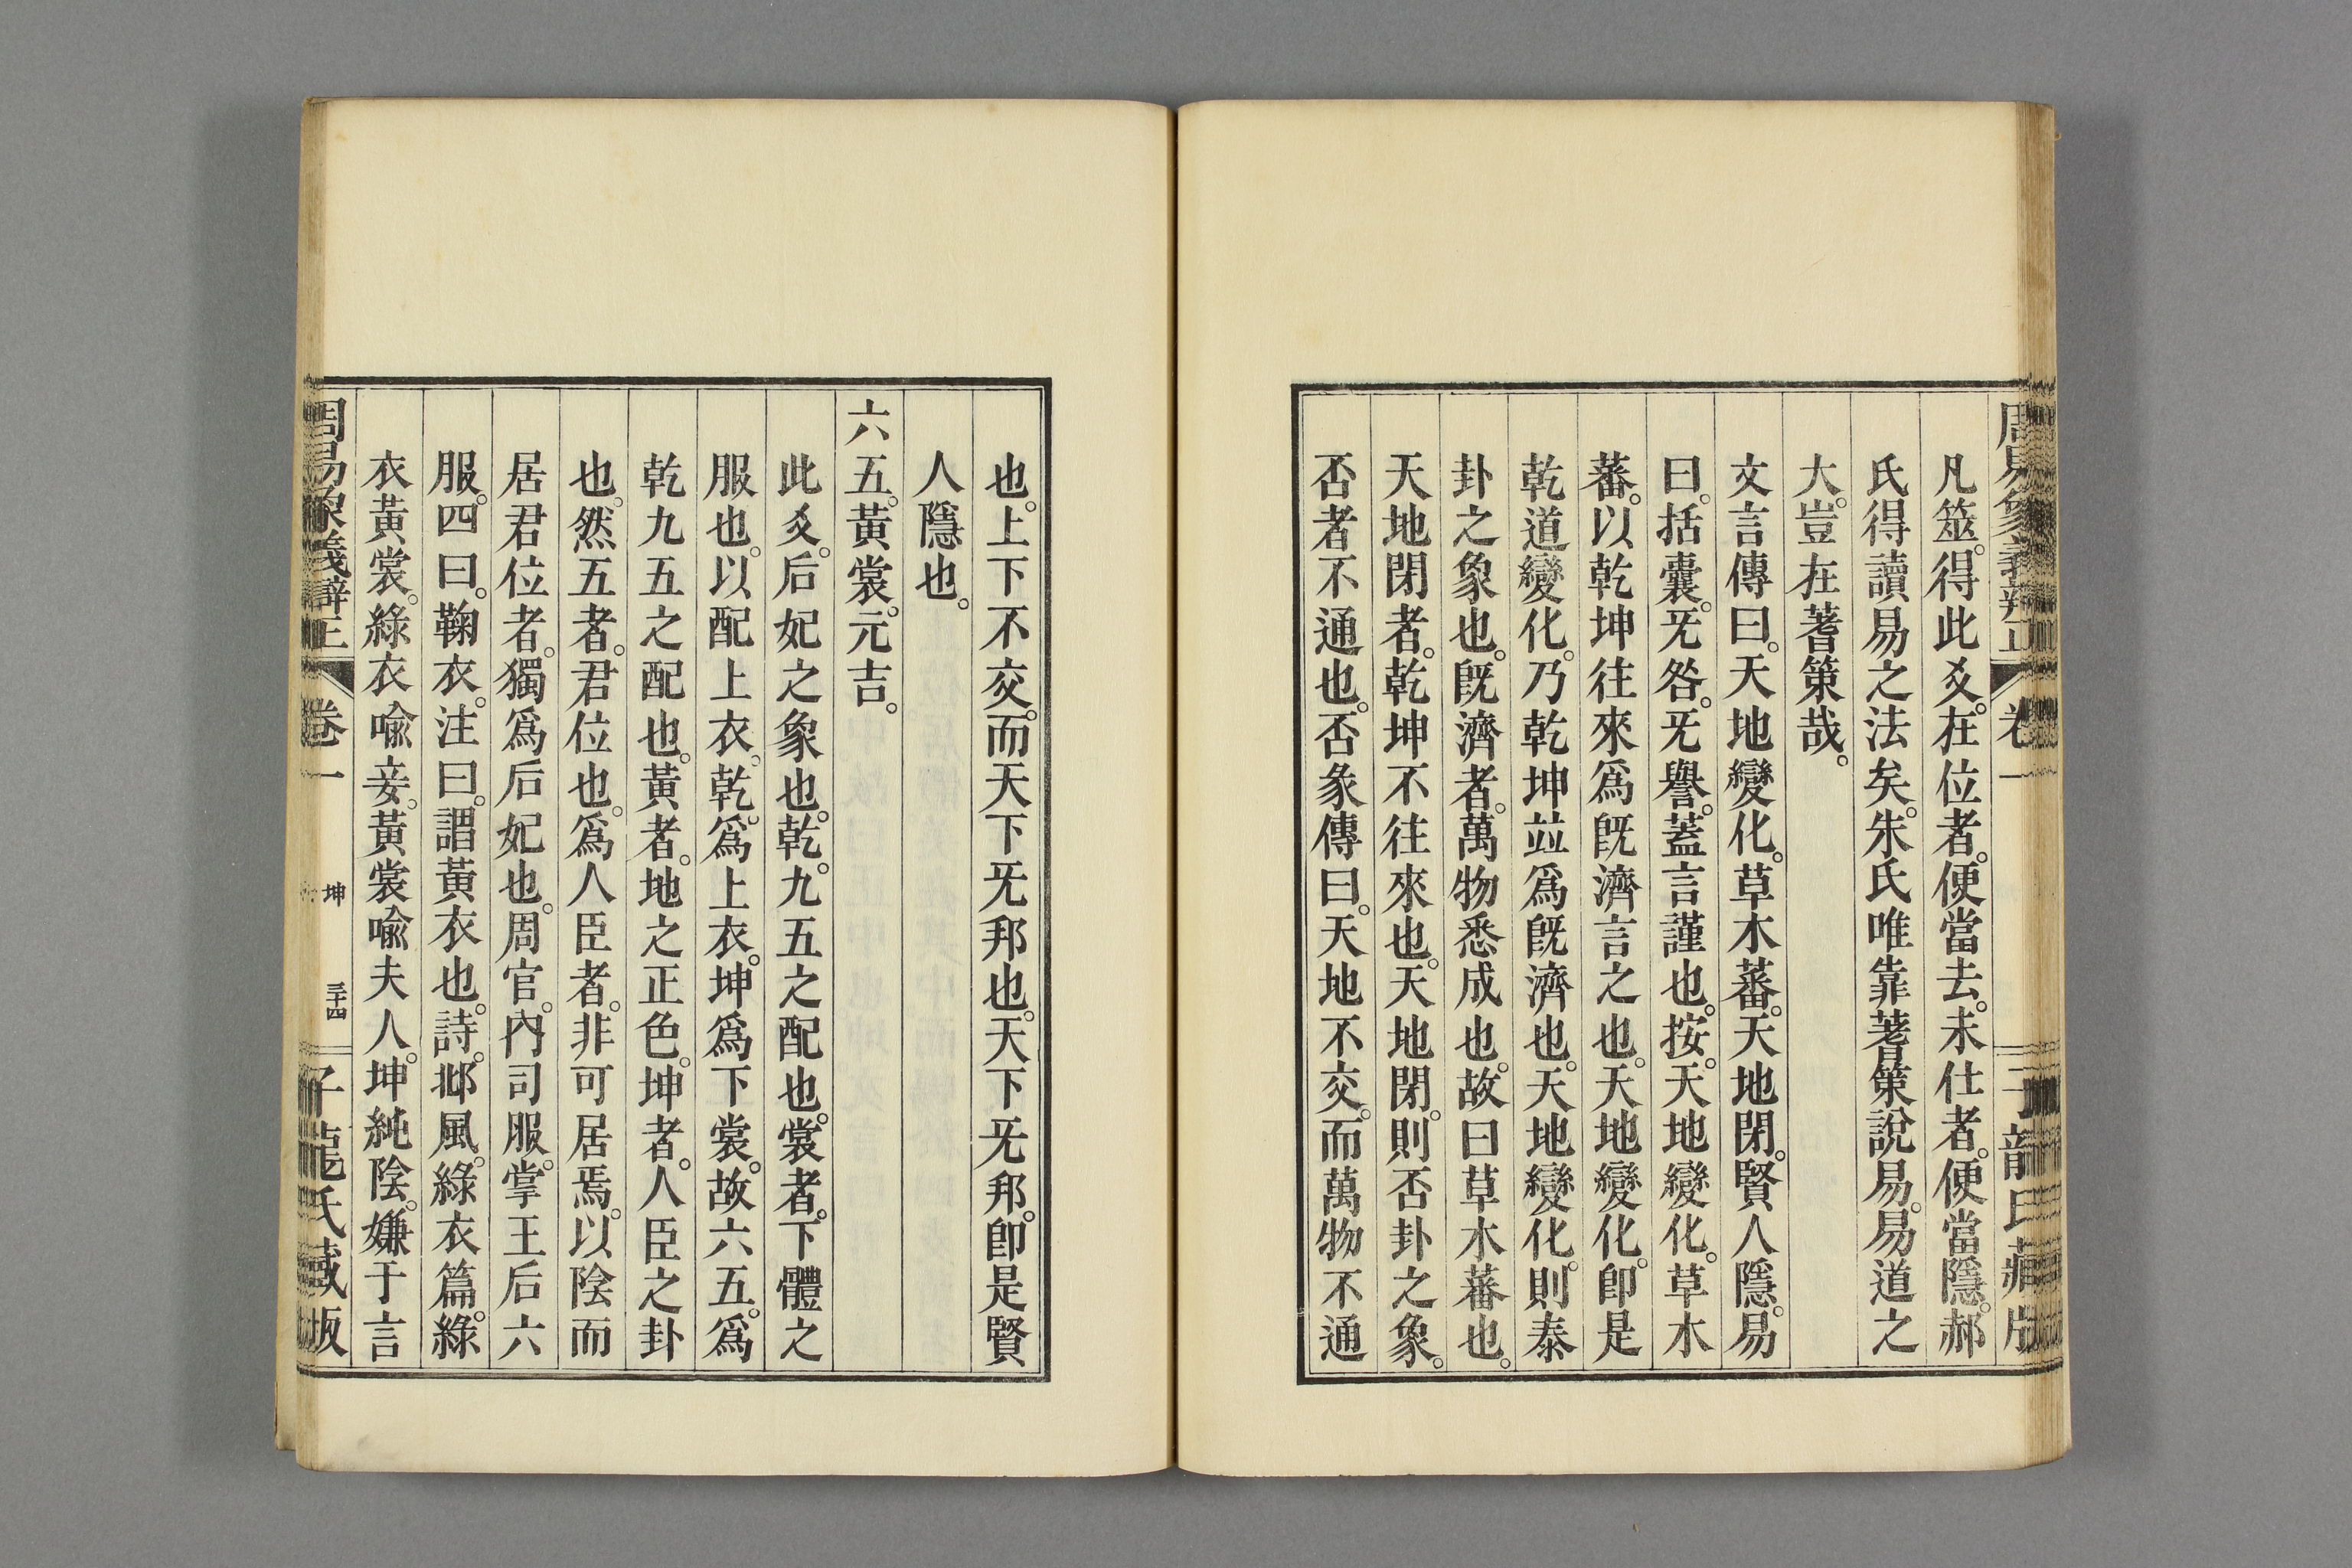 凡筮。得此爻。在位者。便當去。未仕者。便當隱。郝
氏得讀易之法矣。朱氏唯靠蓍策說易。易道之
大。豈在蓍策哉。
文言傳曰。天地變化。草木蕃。天地閉。賢人隱。易
曰。括囊。无咎。无譽。蓋言謹也。按。天地變化。草木
蕃。以乾坤往來爲旣濟言之也。天地變化。卽是
乾道變化。乃乾坤並爲旣濟也。天地變化。則泰
卦之象也。旣濟者。萬物悉成也。故曰草木蕃也。
天地閉者。乾坤不往來也。天地閉。則否卦之象。
否者不通也。否彖傳曰。天地不交。而萬物不通
也。上下不交。而天下无邦也。天下无邦。卽是賢
人隱也。
六五。黃裳。元吉。
此爻。后妃之象也。乾。九五之配也。裳者。下體之
服也。以配上衣。乾。爲上衣。坤爲下裳。故六五。爲
乾九五之配也。黃者。地之正色。坤者。人臣之卦
也。然五者。君位也。爲人臣者。非可居焉。以陰而
居君位者。獨爲后妃也。周官。內司服。掌王后六
服。四曰。鞠衣。注曰。謂黃衣也。詩。邶風。綠衣篇。綠
衣黃裳。綠衣喩妾。黃裳喩夫人。坤純陰。嫌于言
周易象義辯正 卷一 坤 三十四 子龍氏藏版